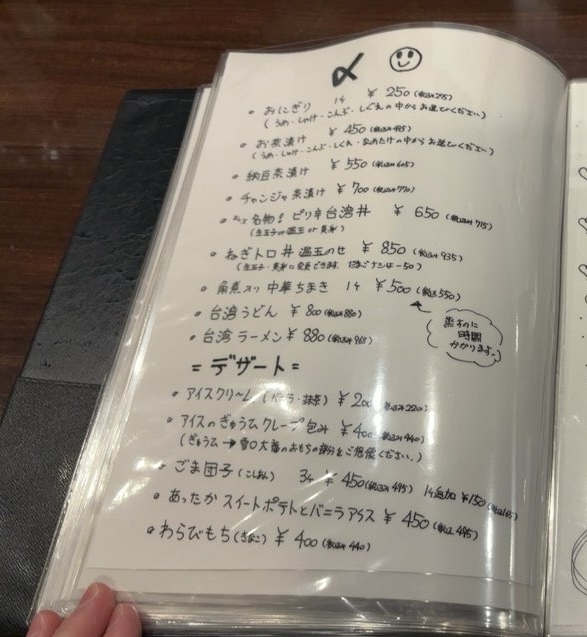 〆
・おにぎり 1ヶ ￥250(税込み275)
(うめ・しゃけ・こんぶ・しぐれの中からお選びください)
・お茶漬け ￥450(税込み495)
(うめ・しゃけ・こんぶ・しぐれ・なめたけの中からお選びください)
・納豆茶漬け ￥550(税込み605)
・チャンジャ茶漬け ￥700(税込み770)
名物！ピリ辛台湾丼 ￥650(税込み715)
・ねぎトロ丼 温玉のせ ￥850(税込み935)
・角煮入り 中華ちまき 1ヶ ￥500(税込550)
蒸すのに
時間
かかります。
・台湾うどん ￥800(税込み880)
・台湾ラーメン ￥880(税込み968)
=デザート=
・アイスクリ〜ム(バニラ・抹茶) ￥200(税込み220)
・アイスのぎゅうひクレープ包み ￥400(税込み440)
(ぎゅうひ→雪口大福のおもちの部分をご想像ください。)
・ごま団子(こしあん) 3ヶ ￥450(税込み495) 1ヶ追加 ￥150(税込165)
・あったか スイートポテトとバニラアイス ￥450(税込495)
・わらびもち(きなこ) ￥400(税込み440)